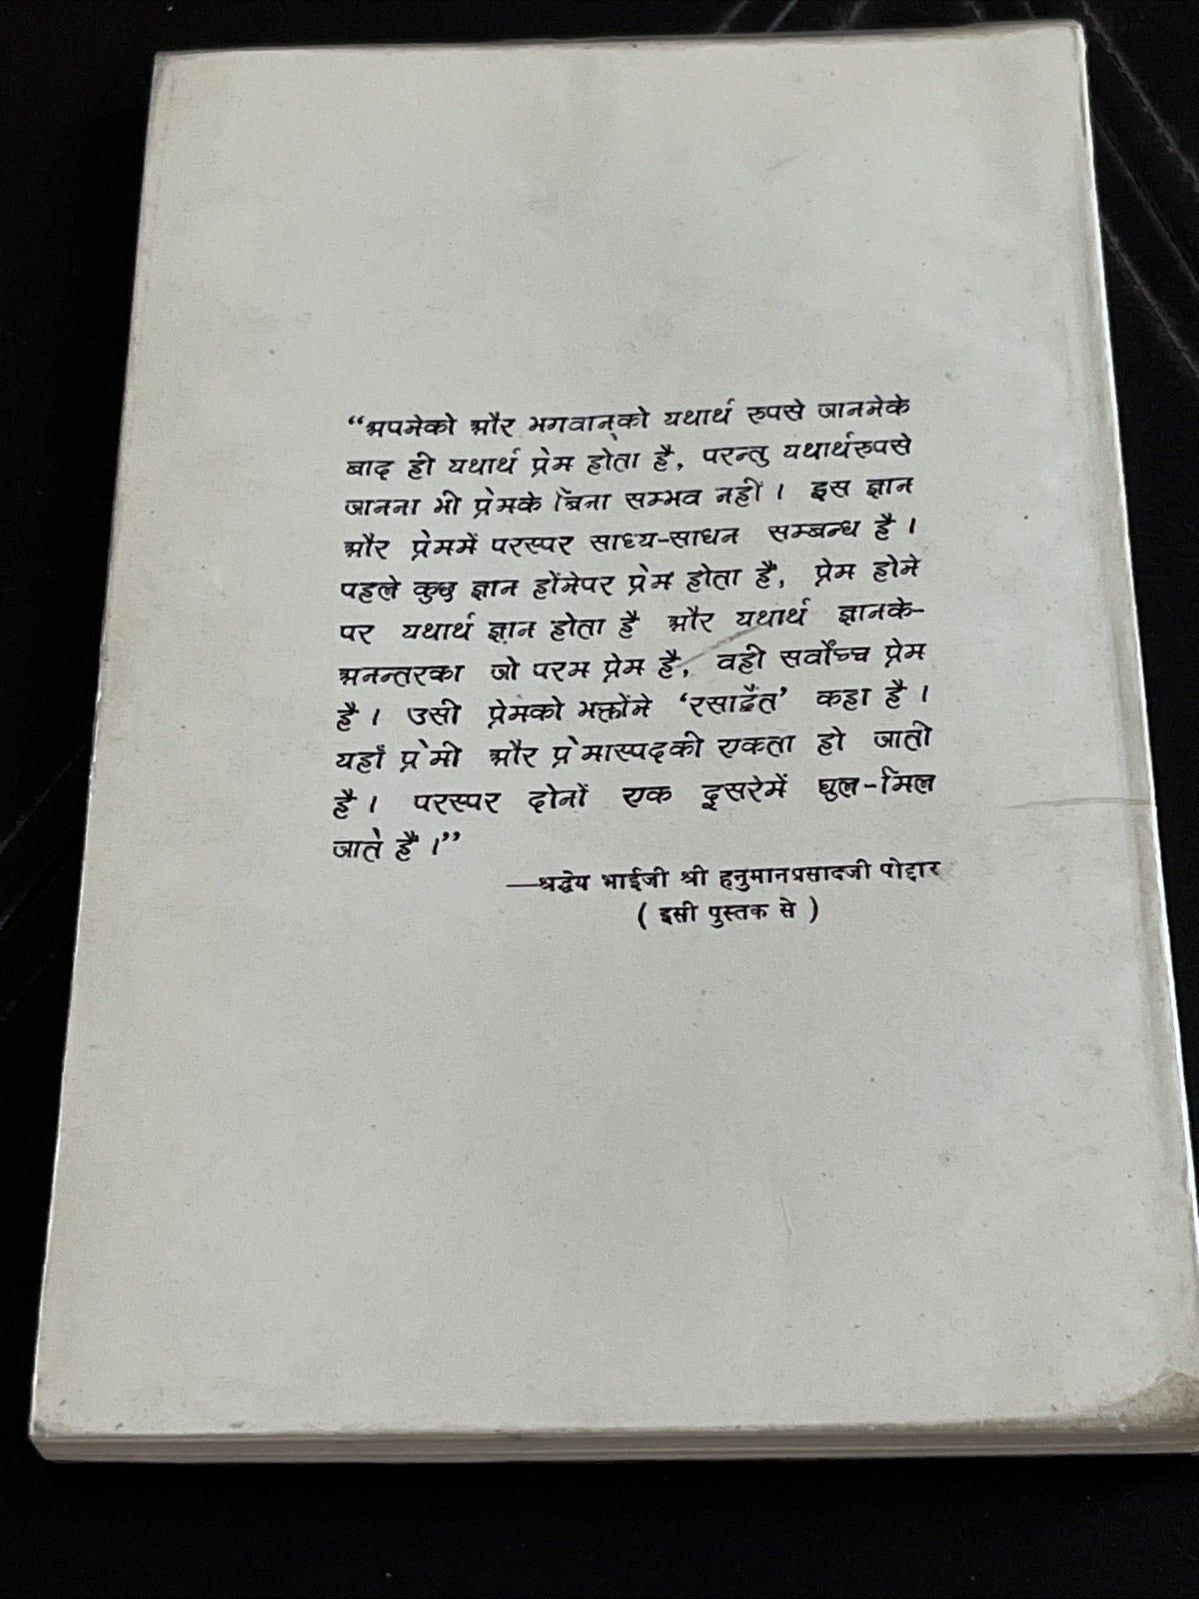 “अपनेको और भगवान्‌को यथार्थ रुपसे जाननेके
बाद ही यथार्थ प्रेम होता है, परन्तु यथार्थरुपसे
जानना भी प्रेमके बिना सम्भव नहीं । इस ज्ञान
और प्रेममें परस्पर साध्य-साधन सम्बन्ध है ।
पहले कुछ ज्ञान होंनेपर प्रेम होता है, प्रेम होने
पर यथार्थ ज्ञान होता है और यथार्थ ज्ञानके-
अनन्तरका जो परम प्रेम है, वही सर्वोच्च प्रेम
है । उसी प्रेमको भक्तोंने ‘रसाद्वैत’ कहा है ।
यहाँ प्रेमी और प्रेमास्पदकी एकता हो जाती
है । परस्पर दोनों एक दूसरेमें घुल-मिल
जाते हैं ।”
—श्रद्धेय भाईजी श्री हनुमानप्रसादजी पोद्दार
( इसी पुस्तक से )